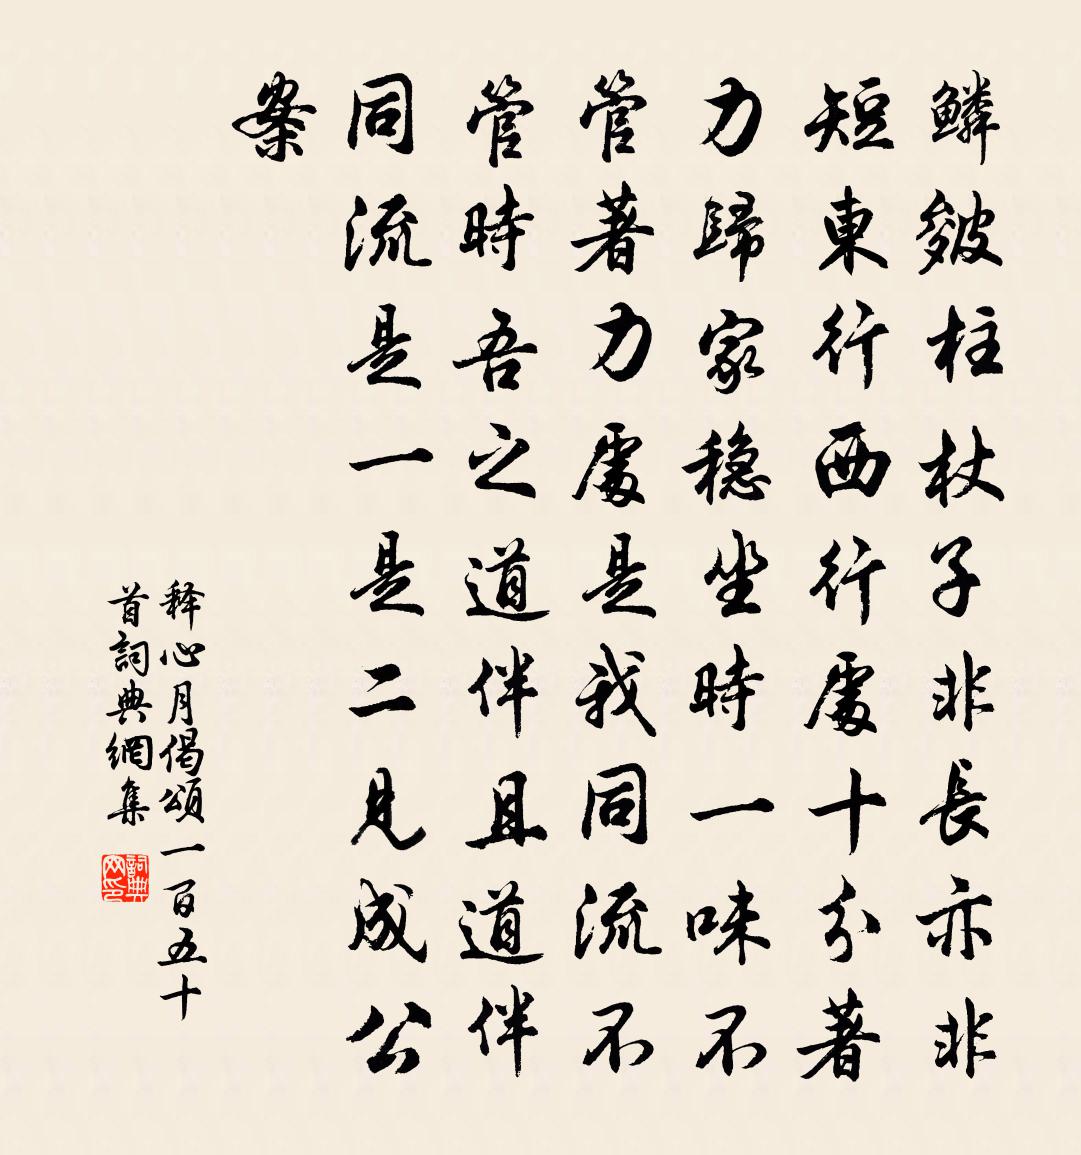 鱗皴柱杖子非長亦非
短東行西行處十分著
力歸家穩坐時一味不
管著力處是我同流不
管時吾之道伴且道伴
同流是一是二見成公
案
释心月偈頌一百五十
首詞典網集
詞典网印